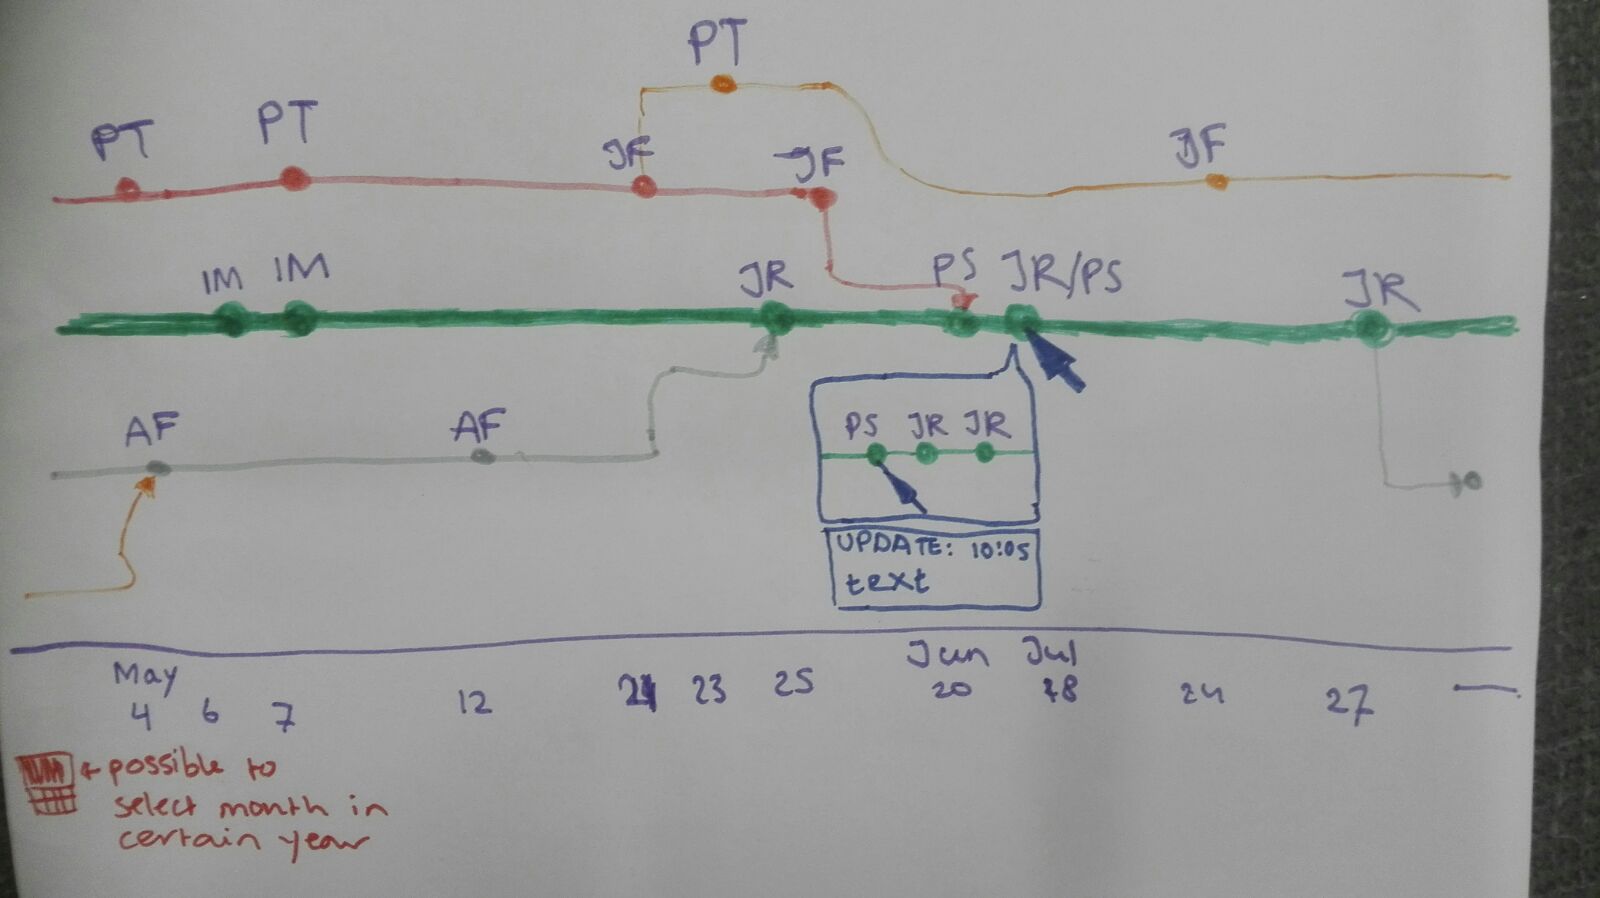 PT
PT
PT
JF
JF
JF
IM
IM
JR
PS
JR/PS
JR
AF
AF
PS JR JR
UPDATE: 10:05
text
May
Jun
Jul
4
6
7
12
23
25
20
24
27
← possible to
select month in
certain year